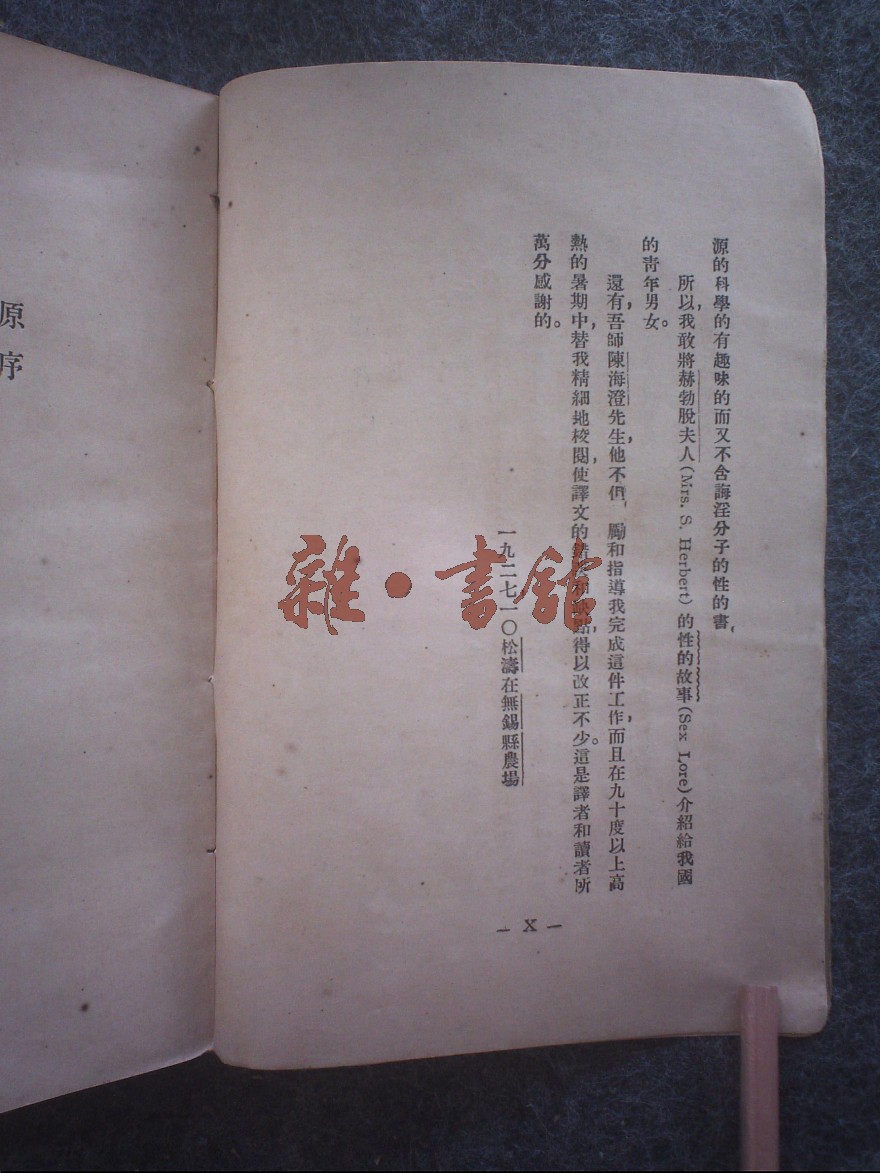 源的科學的有趣味的而又不含誨淫分子的性的書，
所以，我敢將赫勃脫夫人(Mrs. S. Herbert)的性的故事(Sex Lore)介紹給我國
的靑年男女。
還有，吾師陳海澄先生，他不但勵和指導我完成這件工作，而且在九十度以上高
熱的暑期中，替我精細地校閱，使譯文的和點，得以改正不少。這是譯者和讀者所
萬分感謝的。
一九二七一〇松濤在無錫縣農場
— X —
原序
雜·書館